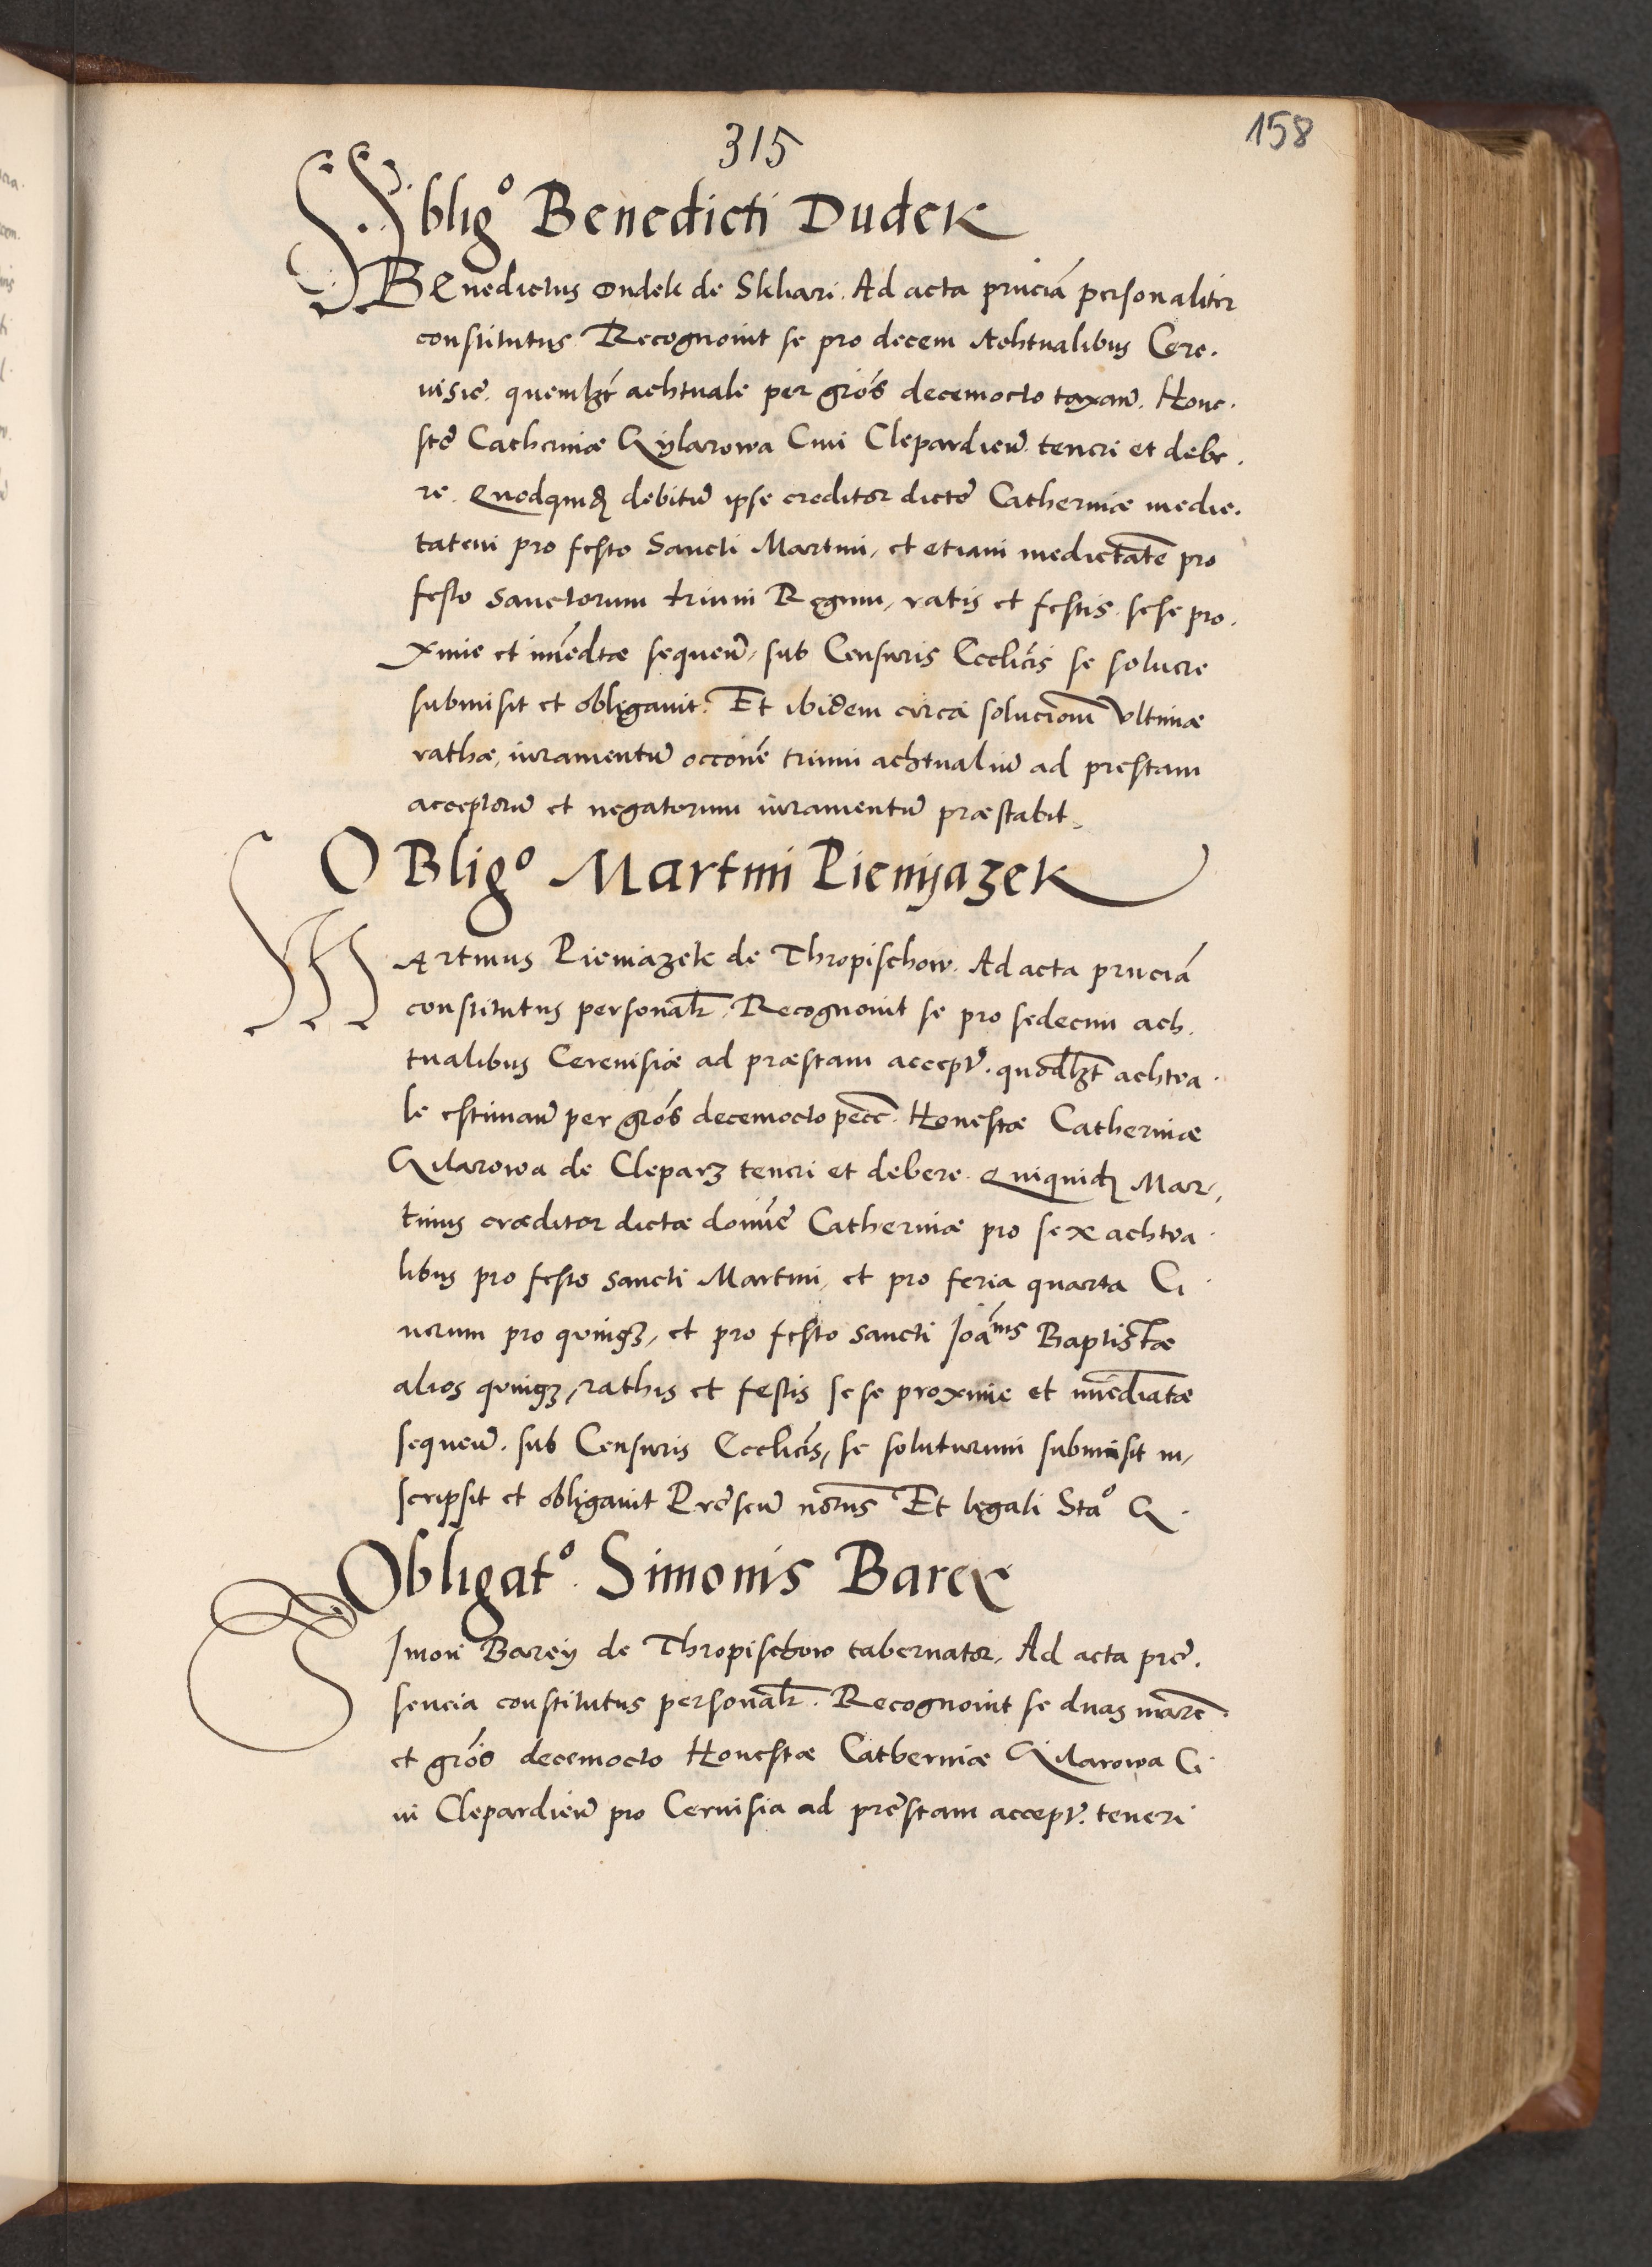 315
158
Obligo Benedicti Dudek
Benedictus Dudek de Skhari. Ad acta pnciā personaliter
constitutus Recognovit se pro decem Achtualibus Cere.
visie. quemlzt achtuale per grōs decemocto taxatū. Hone.
ste Catherinæ Gÿlarowa Civi Clepardien̄ teneri et debe.
re. Quodquidē debitū ipse creditor dicte Catherinæ medie.
tatem pro festo Sancti Martini, et etiam medietatē pro
festo Sanctorum trium Regum, ratis et festis sese pro.
xime et imēdtæ sequen̄, sub Censuris Ecclicīs se soluere
submisit et obligauit. Et ibidem circa solucionē vltimæ
rathæ, iuramentū occōne trium achtualiū ad prestam
acceptorū et negatorum iuramentū præstabit.
OBligo Martini Pienyazek
Martinus Pieniazek de Thropischow. Ad acta pnciā
constitutus personalr. Recognovit se pro sedecim ach.
tualibus Cereuisiæ ad præstam accept. quodlzt achtva.
le estimatū per grōs decemocto pecc. Honestæ Catherinæ
Gilarowa de Cleparz teneri et debere. Quiquidē Mar,
tinus creditor dictæ domīe Catherinæ pro sex achtva.
libus pro festo sancti Martini, et pro feria quarta Ci.
nerum pro quinqz, et pro festo sancti Joānis Baptistæ
alios quinqz, rathis et festis se se proxime et imēdiatæ
sequen̄. sub Censuris Ecclicīs, se soluturum submisit in,
scripsit et obligauit Prēsciū notus Et legali Stao
Obligato. Simonis Barey
Simon Barey de Thropischow tabernator. Ad acta prē.
sencia constitutus personalr. Recognovit se duas marc.
et grōs decemocto Honestæ Catherinæ Gilarowa Ci
vi Clepardien̄ pro Ceruisia ad prēstam accept. teneri